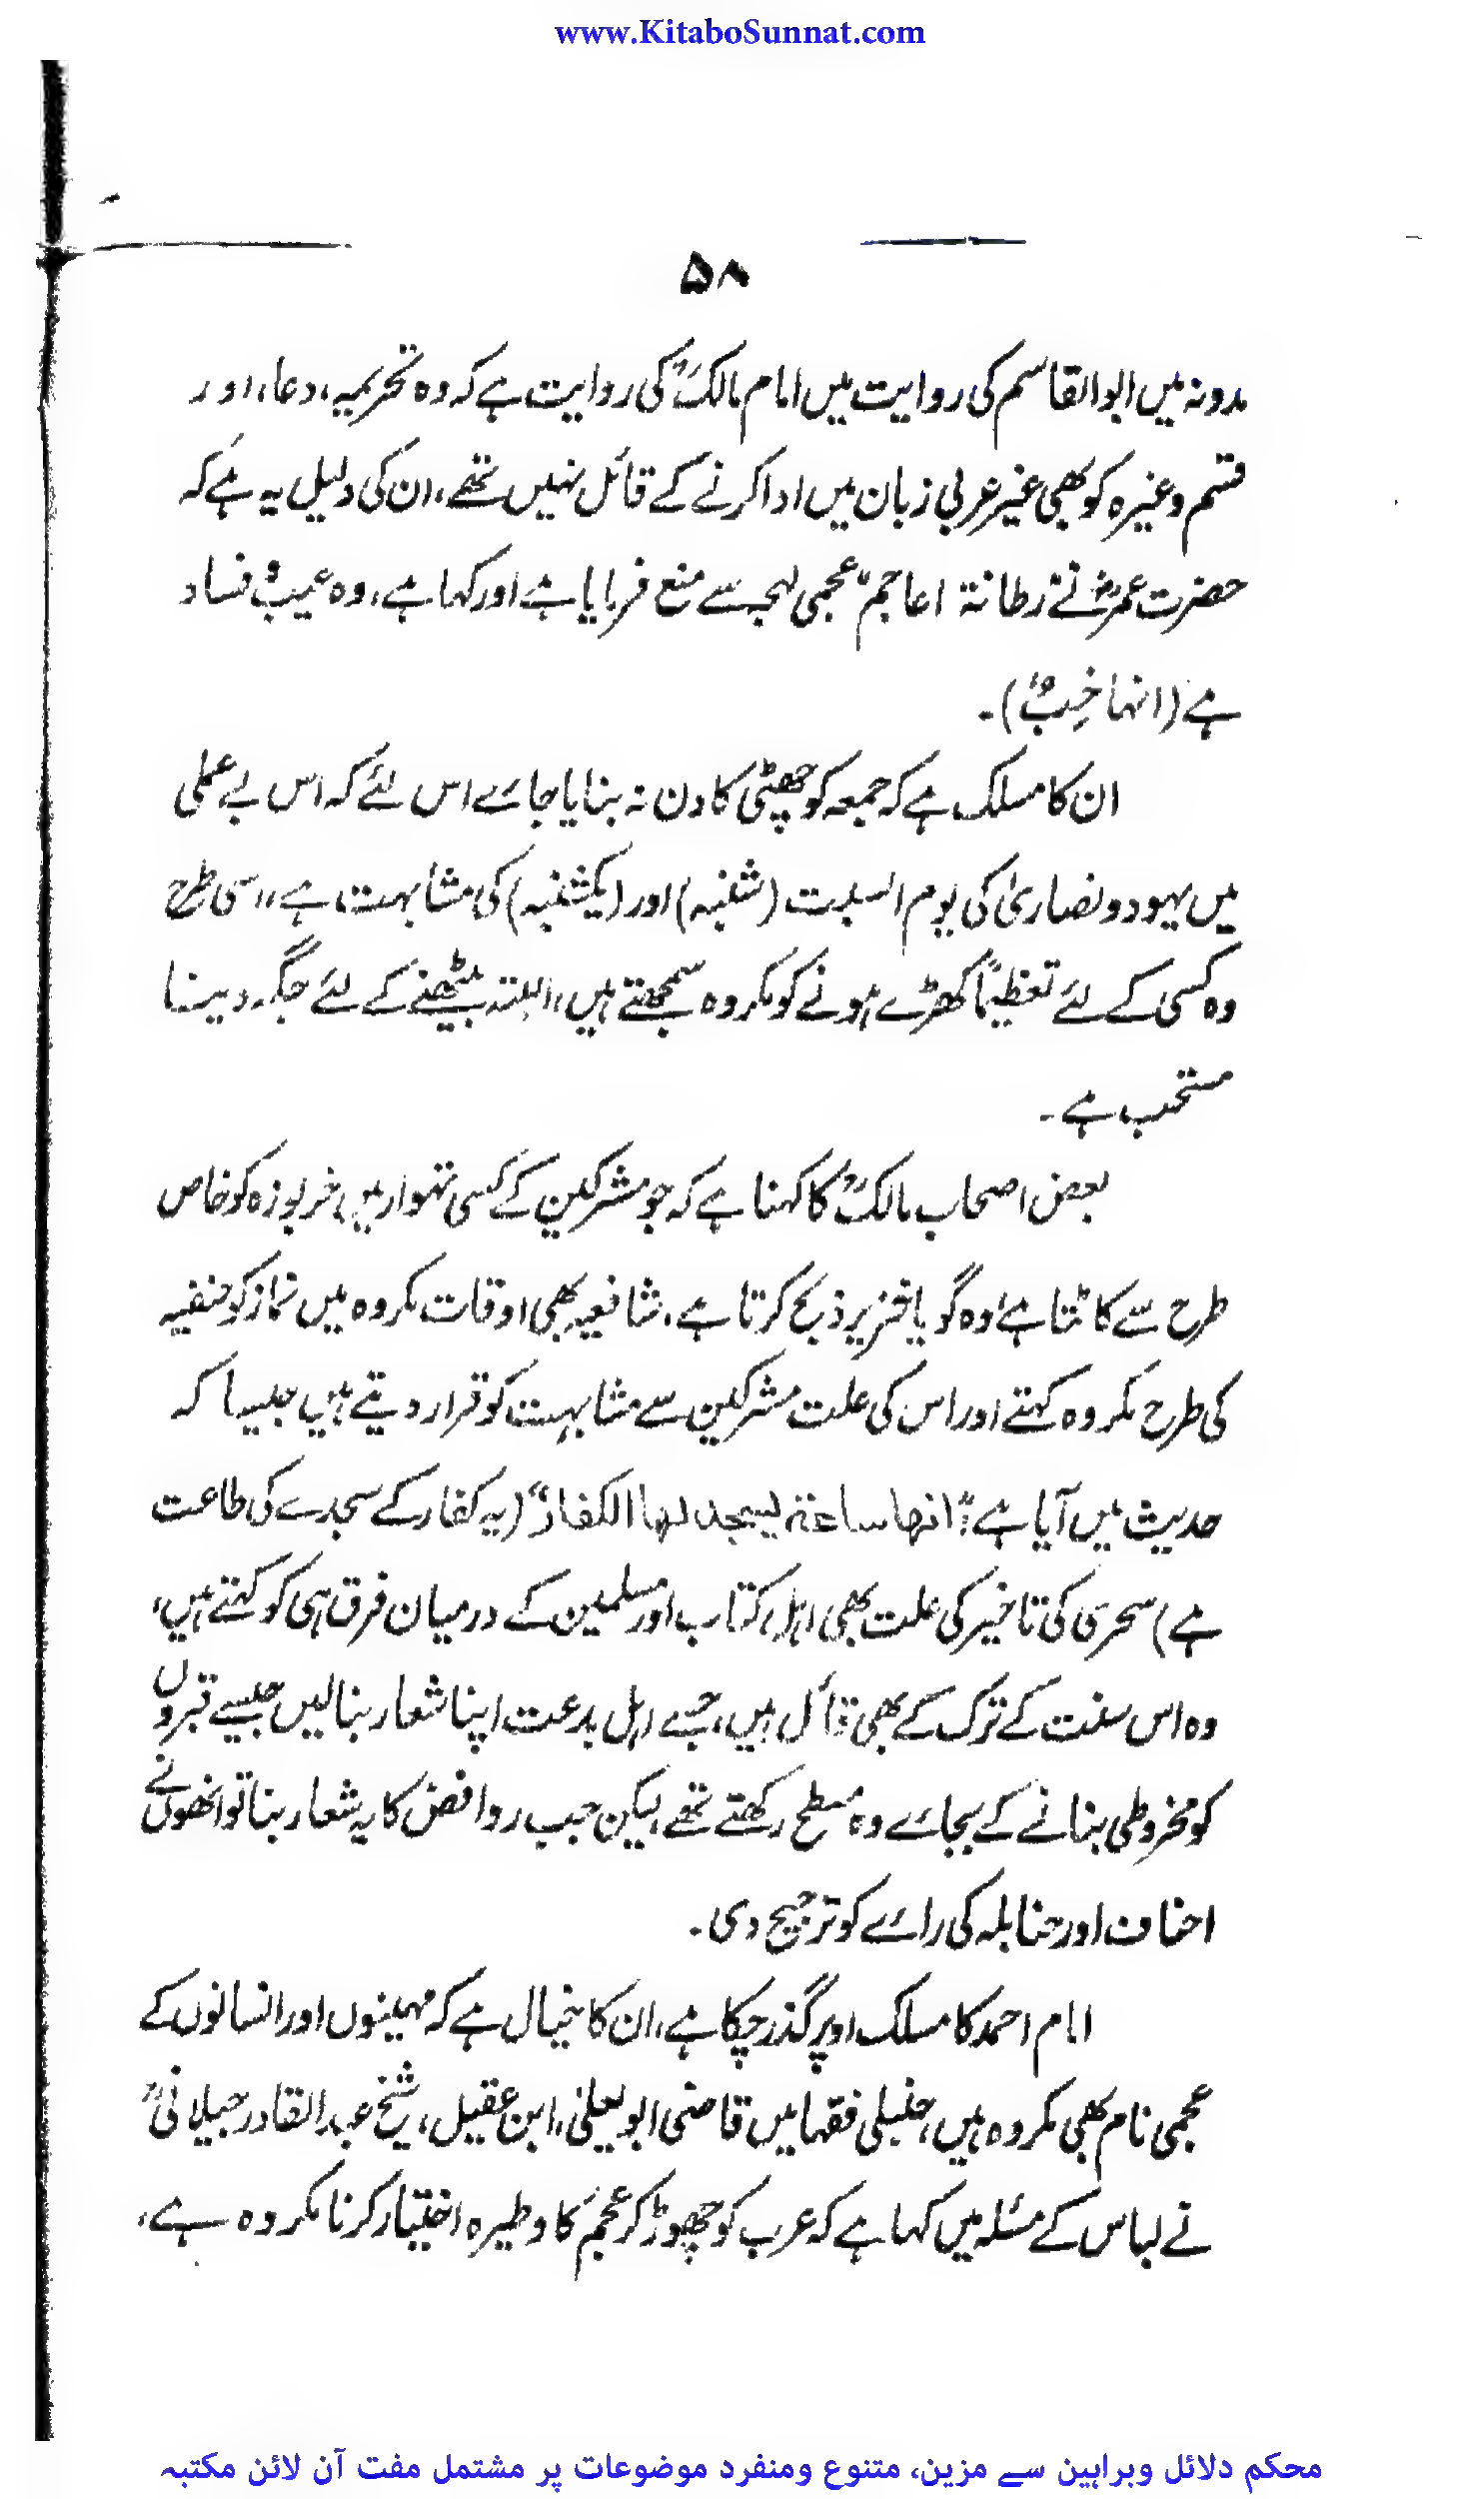 www.KitaboSunnat.com
۵۸
مدونہ میں ابوالقاسم کی روایت میں امام مالکؒ کی روایت ہے کہ وہ تحریمیہ، دعا، اور
قسم وغیرہ کو بھی غیر عربی زبان میں ادا کرنے کے قائل نہیں تھے، ان کی دلیل یہ ہے کہ
حضرت عمرؓ نے رطانۃ اعاجم" عجمی لہجہ سے منع فرمایا ہے اور کہا ہے، وہ عیب و فساد
ہے (انھا خِبٌّ)۔
ان کا مسلک ہے کہ جمعہ کو چھٹی کا دن نہ بنایا جائے اس لئے کہ اس بے عملی
میں یہود و نصاریٰ کی یوم السبت (شنبہ) اور (یکشنبہ) کی مشابہت ہے، اسی طرح
وہ کسی کے لئے تعظیماً کھڑے ہونے کو مکروہ سمجھتے ہیں، البتہ بیٹھنے کے لئے جگہ دینا
مستحب ہے۔
بعض اصحاب مالکؒ کا کہنا ہے کہ جو مشرکین کے کسی تہوار میں خربوزہ کو خاص
طرح سے کاٹتا ہے وہ گویا خنزیر ذبح کرتا ہے، شافعیہ بھی اوقات مکروہ میں نماز کو حنفیہ
کی طرح مکروہ کہتے اور اس کی علت مشرکین سے مشابہت کو قرار دیتے ہیں جیسا کہ
حدیث میں آیا ہے: "انھا ساعۃ یسجد لھا الکفار" (یہ کفار کے سجدے کی طاعت
ہے) سحری کی تاخیر کی علت بھی اہل کتاب اور مسلمین کے درمیان فرق ہی کو کہتے ہیں،
وہ اس سنت کے ترک کے بھی قائل ہیں، جسے اہل بدعت اپنا شعار بنالیں جیسے قبروں
کو مخروطی بنانے کے بجائے وہ مسطح رکھتے تھے لیکن جب روافض کا یہ شعار بنا تو انھوں نے
احناف اور حنابلہ کی رائے کو ترجیح دی۔
امام احمد کا مسلک اوپر گذر چکا ہے، ان کا خیال ہے کہ مہینوں اور انسانوں کے
عجمی نام بھی مکروہ ہیں، حنبلی فقہا میں قاضی ابو یعلیٰ، ابن عقیل، شیخ عبدالقادر جیلانیؒ
نے لباس کے مسئلہ میں کہا ہے کہ عرب کو چھوڑ کر عجم کا وطیرہ اختیار کرنا مکروہ ہے،
محکم دلائل وبراہین سے مزین، متنوع ومنفرد موضوعات پر مشتمل مفت آن لائن مکتبہ